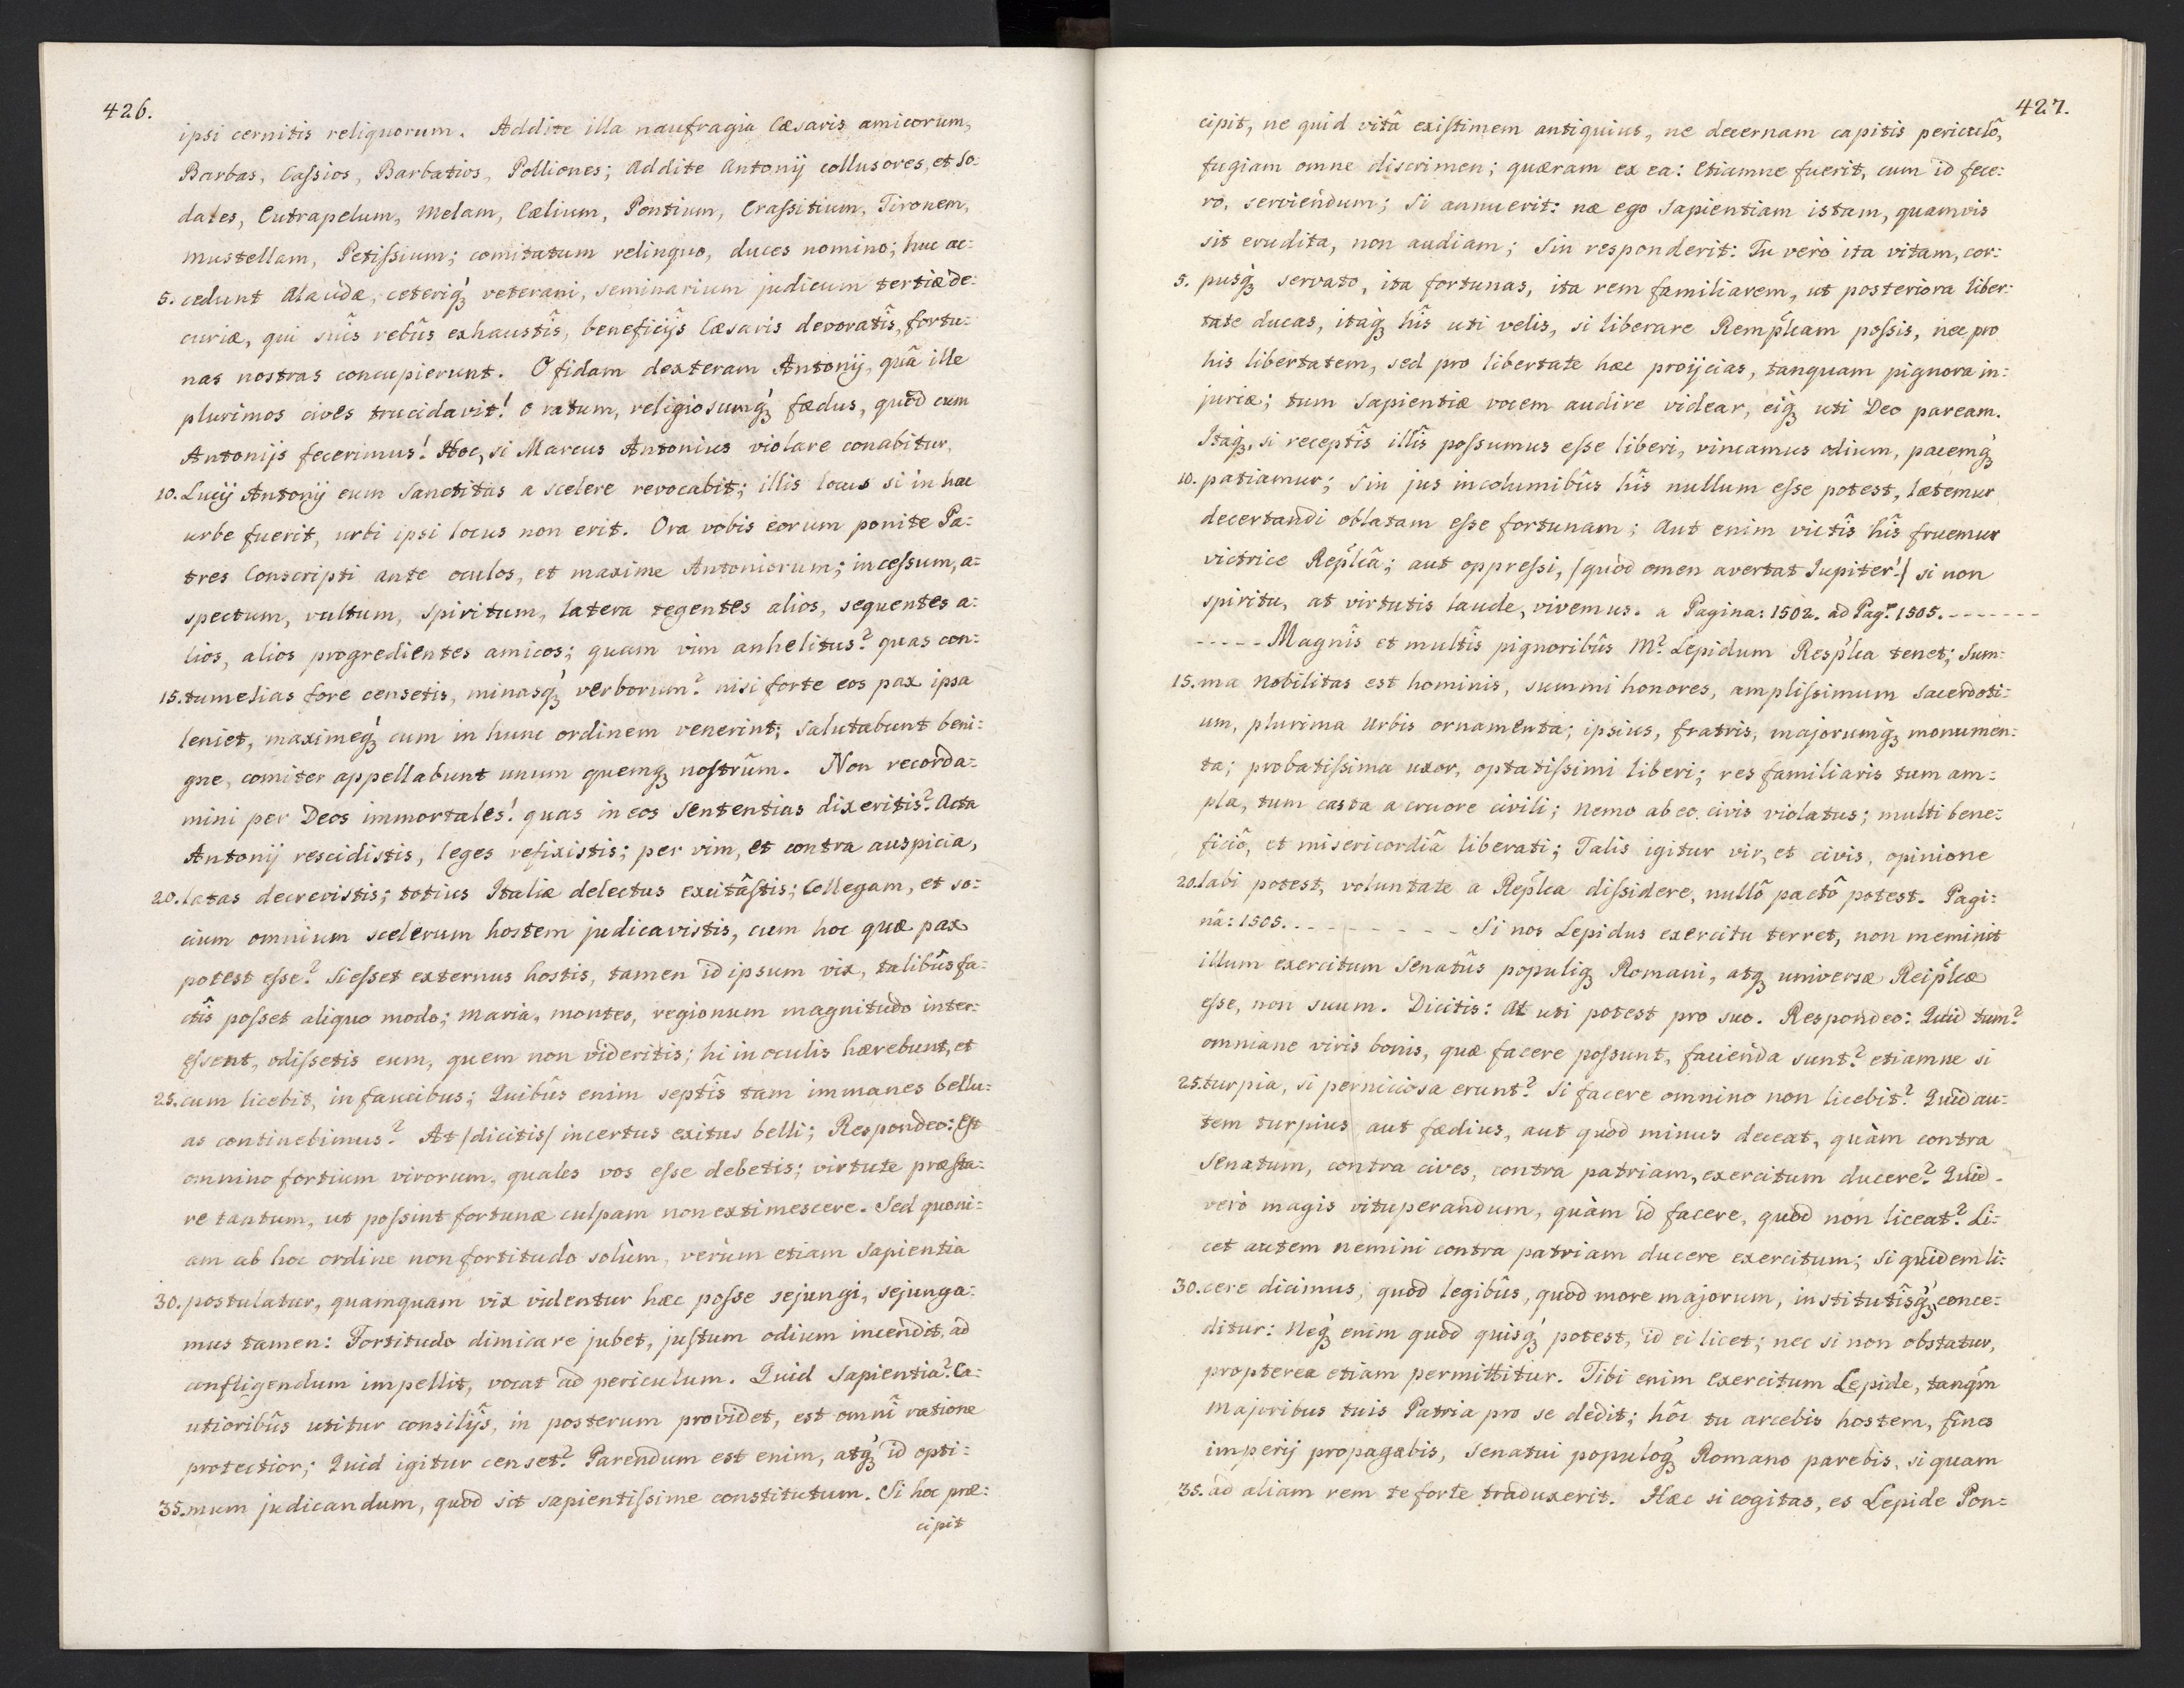 426.
ipsi cernitis reliquorum. Addite illa naufragia Cæsaris amicorum,
Barbas, Caſsios, Barbatios, Polliones; Addite Antonij collusores, et So:
dales, Eutrapelum, Melam, Cælium, Pontium, Craſsitium, Tironem,
Mustellam, Petiſsium; comitatum relinquo, duces nomino; huc ac:
5. cedunt Alaudæ, ceteriq́ꝫ veterani, seminarium judicum tertiæ de:
curiæ, qui suîs rebûs exhaustîs, beneficijs Cæsaris devoratîs, fortu:
nas nostras concupierunt. O fidam dexteram Antonij, quâ ille
plurimos cives trucidavit! o ratum, religiosumq́ꝫ fædus, quod cum
Antonijs fecerimus! Hoc, si Marcus Antonius violare conabitur,
10. Lucij Antonij eum Sanctitas a scelere revocabit; illis locus si in hac
urbe fuerit, urbi ipsi locus non erit. Ora vobis eorum ponite Pa:
tres Conscripti ante oculos, et maxime Antoniorum; inceſsum, a:
spectum, vultum, spiritum, latera tegentes alios, sequentes a:
lios, alios progredientes amicos; quam vim anhelitus? quas con:
15. tumelias fore censetis, minasq́ꝫ verborum? nisi forte eos pax ipsa
leniet, maximeq́ꝫ cum in hunc ordinem venerint; Salutabunt beni:
gne, comiter appellabunt unum quemqꝫ noſtrûm. Non recorda:
mini per Deos immortales! quas in eos Sententias dixeritis? Acta
Antonij rescidistis, leges refixistis; per vim, et contra auspicia,
20. latas decrevistis; totius Italiæ delectus excitâſtis; Collegam, et so:
cium omnium scelerum hostem judicavistis, cum hoc quæ pax
potest eſse? Si eſset externus hostis, tamen id ipsum vix, talibûs fa:
ctîs poſset aliquo modo; maria, montes, regionum magnitudo inter:
eſsent, odiſsetis eum, quem non videritis; hi in oculis hærebunt, et
25. cum licebit, in faucibus; Quibûs enim septîs tam immanes bellu:
as continebimus? At /dicitis/ incertus exitus belli; Respondeo: Est
omnino fortium virorum, quales vos eſse debetis; virtute præſta:
re tantum, ut poſsint fortunæ culpam non extimescere. Sed quoni:
am ab hoc ordine non fortitudo solùm, verùm etiam Sapientia
30. postulatur, quamquam vix videntur hæc poſse sejungi, sejunga:
mus tamen: Fortitudo dimicare jubet, juſtum odium incendit, ad
confligendum impellit, vocat ad periculum. Quid Sapientia? Ca:
utioribûs utitur consilijs, in posterum providet, est omnî ratione
protectior; Quid igitur censet? Parendum est enim, atq́ꝫ id opti:
35. mum judicandum, quod sit sapientiſsime constitutum. Si hoc præ:
cipit
427.
cipit, ne quid vitâ exiſtimem antiquius, ne decernam capitis periculô,
fugiam omne discrimen; quæram ex ea: Etiamne fuerit, cum id fece:
ro, serviendum; Si annuerit: næ ego Sapientiam istam, quamvis
sit erudita, non audiam; Sin responderit: Tu verò ita vitam, cor:
5. pusq́ꝫ servato, ita fortunas, ita rem familiarem, ut posteriora liber:
tate ducas, itaqꝫ hîs uti velis, si liberare Remplcam poſsis, nec pro
his libertatem, sed pro libertate hæc proijcias, tanquam pignora in:
juriæ; tum Sapientiæ vocem audire videar, eiqꝫ uti Deo paream.
Itaqꝫ, si receptîs illîs poſsumus eſse liberi, vincamus odium, pacemqꝫ
10. patiamur; Sin jus incolumibûs hîs nullum eſse potest, lætemur
decertandi oblatam eſse fortunam; Aut enim victîs hîs fruemur
victrice Replcâ; aut oppreſsi, /quod omen avertat Jupiter!/ si non
spiritu, at virtutis laude, vivemus. a Pagina: 1502. ad Pag: 1505.-------
-----Magnîs et multîs pignoribûs M? Lepidum Resplca tenet; Sum:
15. ma Nobilitas est hominis, summi honores, ampliſsimum sacerdoti:
um, plurima Urbis ornamenta; ipsius, fratris, majorumqꝫ monumen:
ta; probatiſsima uxor, optatiſsimi liberi; res familiaris tum am:
pla, tum casta a cruore civili; Nemo ab eo civis violatus; multi bene:
ficiô, et misericordiâ liberati; Talis igitur vir, et civis, opinione
20. labi potest, voluntate a Replca diſsidere, nullô pactô potest. Pagi:
nâ: 1505.--------- Si nos Lepidus exercitu terret, non meminit
illum exercitum Senatûs populiqꝫ Romani, atqꝫ universæ Reiplcæ
eſse, non suum. Dicitis: At uti potest pro suo. Respondeo: Quid tum?
omniane viris bonis, quæ facere poſsunt, facienda sunt? etiamne si
25. turpia, si perniciosa erunt? Si facere omnino non licebit? Quid au:
tem turpius aut fædius, aut quod minus deceat, quàm contra
Senatum, contra cives, contra patriam, exercitum ducere? Quid
verò magis vituperandum, quàm id facere, quod non liceat? Li:
cet autem nemini contra patriam ducere exercitum; Si quidem li:
30. cere dicimus, quod legibûs, quod more majorum, institutîsq́ꝫ conce:
ditur: Neq́ꝫ enim quod quisq́ꝫ potest, id ei licet; nec si non obstatur,
propterea etiam permittitur. Tibi enim exercitum Lepide, tanqm
Majoribus tuis Patria pro se dedit; hôc tu arcebis hostem, fines
imperij propagabis, Senatui populoq́ꝫ Romano parebis, si quam
35. ad aliam rem te forte traduxerit. Hæc si cogitas, es Lepide Pon: